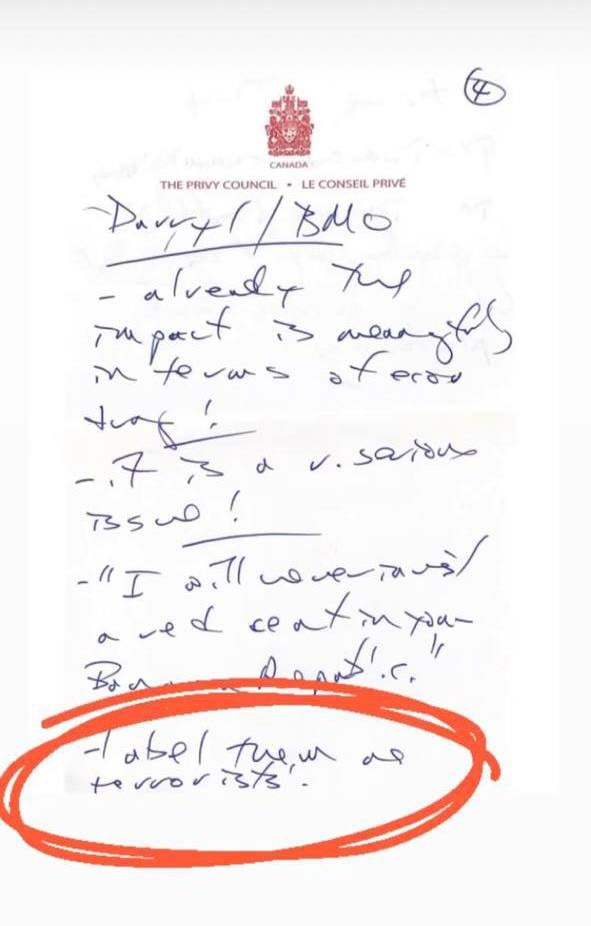 4
CANADA
THE PRIVY COUNCIL • LE CONSEIL PRIVÉ
Darryl / BMO
- already the
impact is meaningful
in terms of econ
!
- it is a v. serious
issue!
- "I will never invest
a red cent in your
Banana Republic."
- label them as
terrorists.